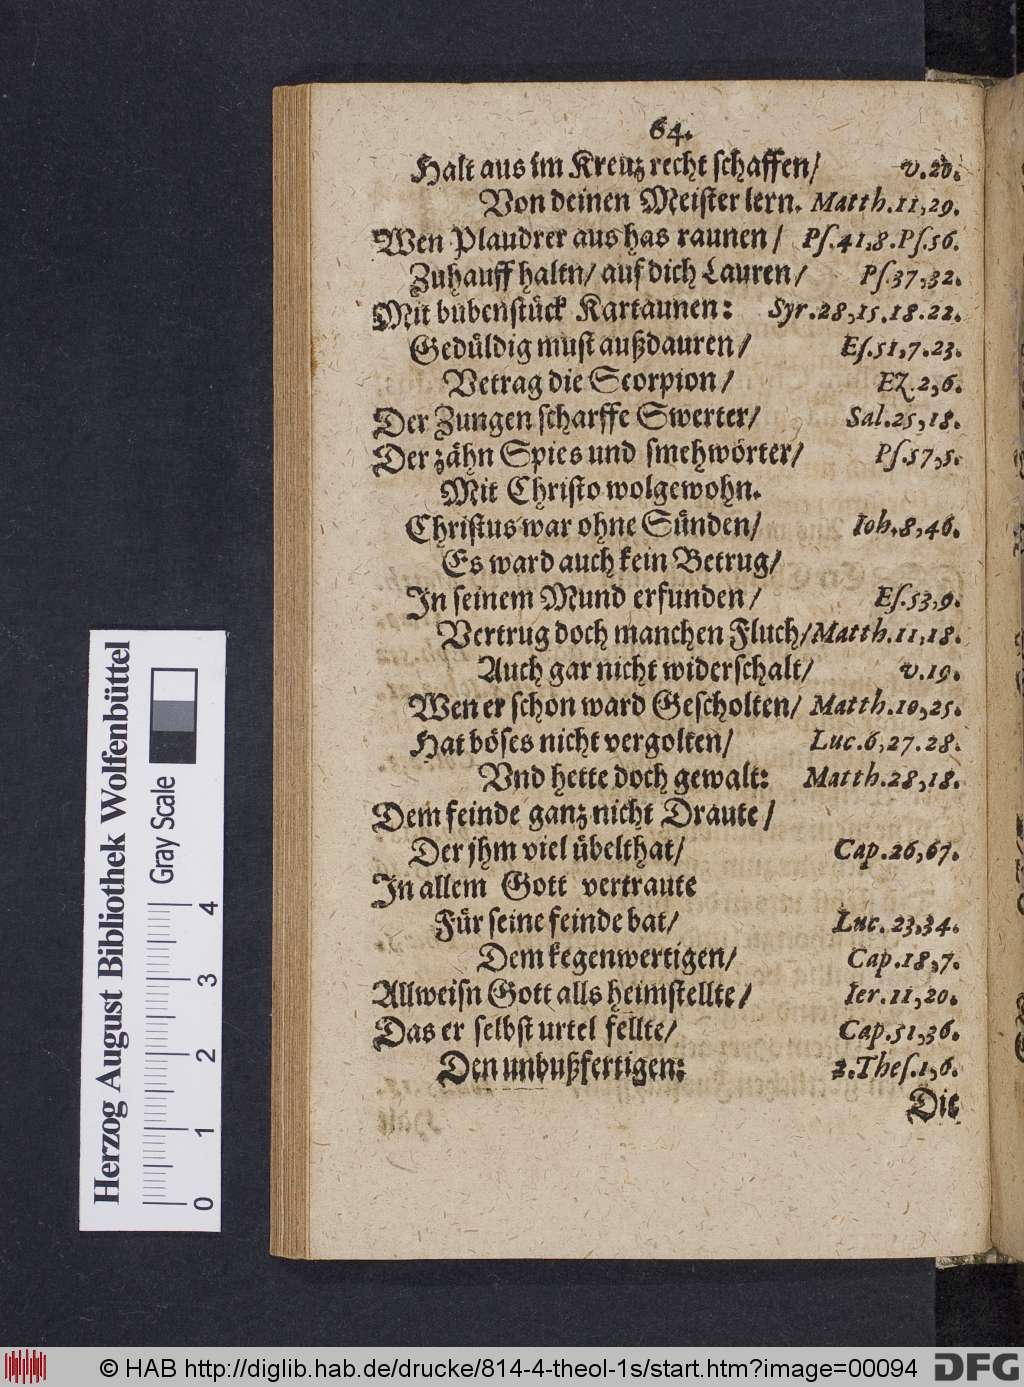 64.
Halt aus im Kreuz recht schaffen/ v.20.
Von deinen Meister lern. Matth.11,29.
Wen Plaudrer aus has raunen / Ps.41,8.Ps.56.
Zuhauff haltn/ auf dich Lauren/ Ps.37,32.
Mit bubenstück Kartaunen: Syr.28,15.18.22.
Gedüldig must außdauren/ Es.51,7.23.
Vetrag die Scorpion/ Ez.2,6.
Der Zungen scharffe Swerter/ Sal.25,18.
Der zähn Spies und smehwörter/ Ps.57,5.
Mit Christo wolgewohn.
Christus war ohne Sünden/ Ioh.8,46.
Es ward auch kein Betrug/
In seinem Mund erfunden/ Es.53,9.
Vertrug doch manchen Fluch/ Matth.11,18.
Auch gar nicht widerschalt/ v.19.
Wen er schon ward Gescholten/ Matth.10,25.
Hat böses nicht vergolten/ Luc.6,27.28.
Vnd hette doch gewalt: Matth.28,18.
Dem feinde ganz nicht Draute/
Der jhm viel übelthat/ Cap.26,67.
In allem Gott vertraute
Für seine feinde bat/ Luc.23,34.
Dem kegenwertigen/ Cap.18,7.
Allweisn Gott alls heimstellte/ Ier.11,20.
Das er selbst urtel fellte/ Cap.51,36.
Den unbußfertigen: 2.Thes.1,6.
Die
Herzog August Bibliothek Wolfenbüttel
Gray Scale
0 1 2 3 4
© HAB http://diglib.hab.de/drucke/814-4-theol-1s/start.htm?image=00094
DFG